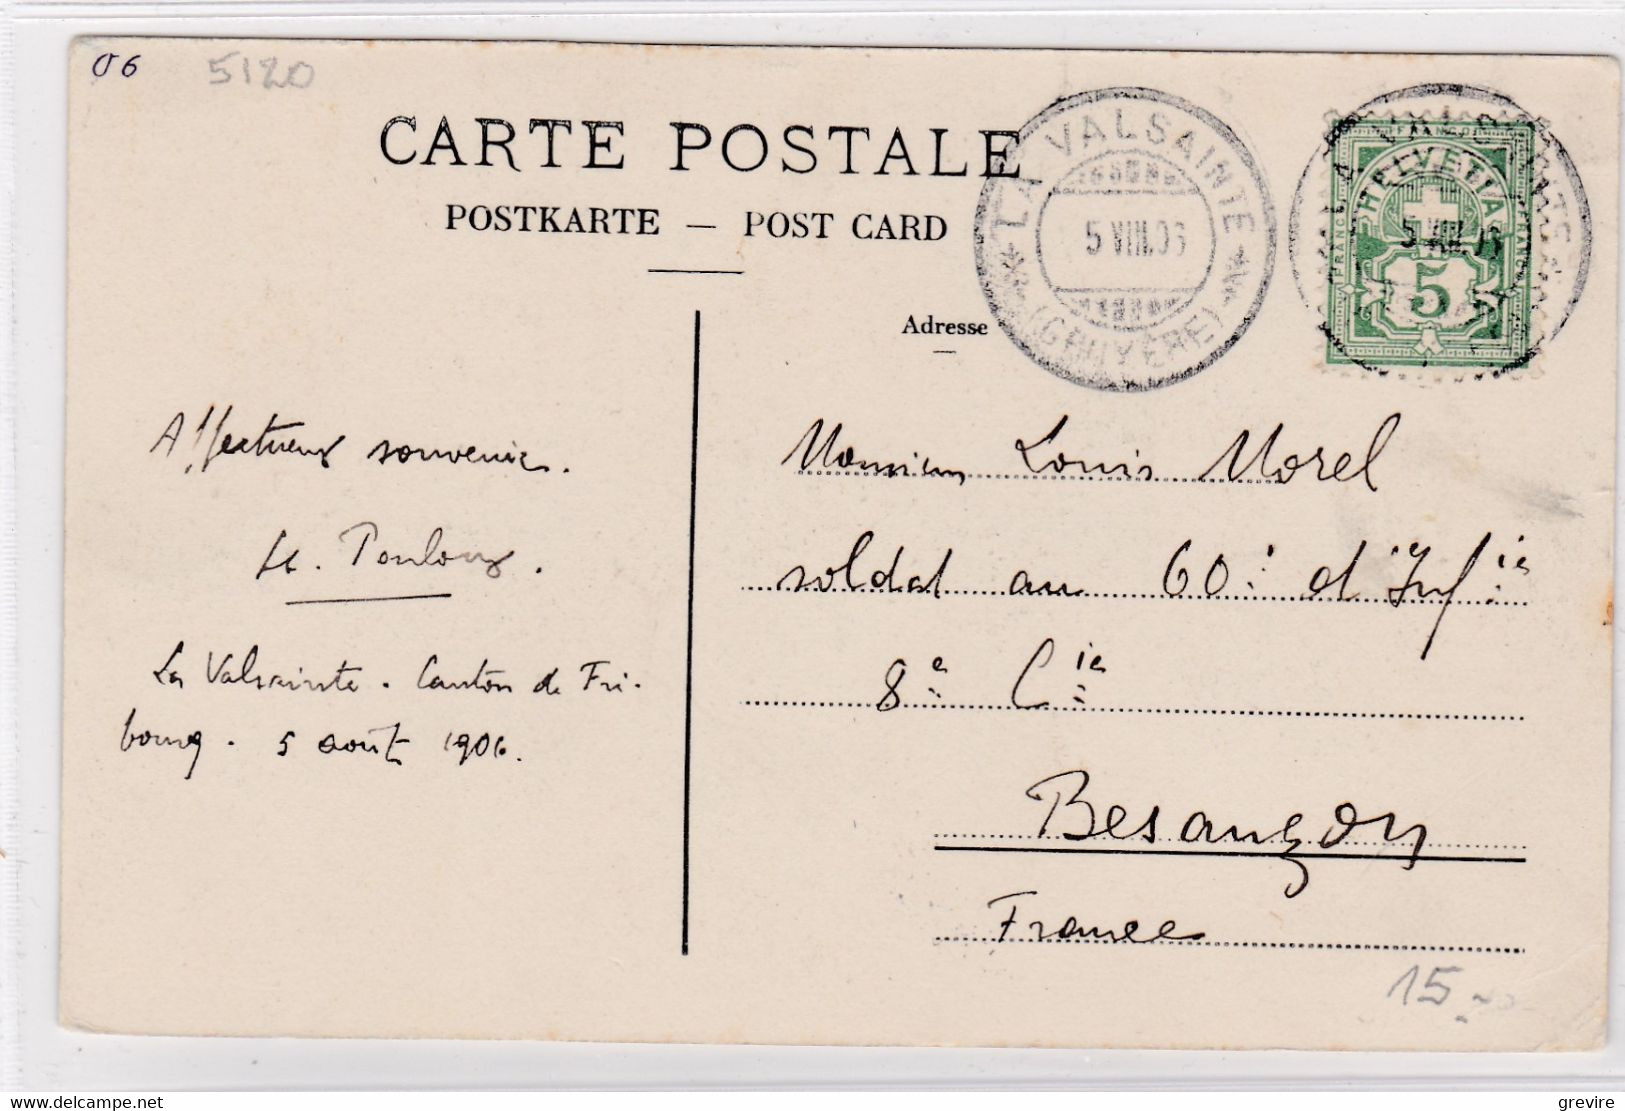 06 5120
CARTE POSTALE
POSTKARTE — POST CARD
Adresse
LA VALSAINTE
5 VIII.06
(GRUYÈRE)
HELVETIA
FRANCO
FRANCO
5 VIII.06
5
Affectueux souvenir.
La Valsainte. Canton de Fri-
bourg. 5 août 1906.
Monsieur Louis Morel
soldat au 60e d'Infie
8e Cie
Besançon
France
15.-
delcampe.net
grevire